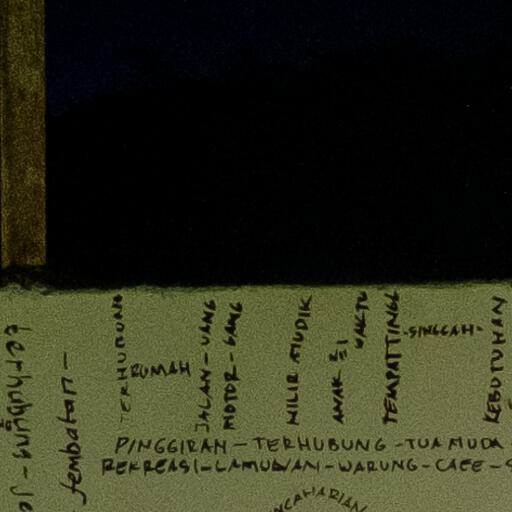 terhubung -
Jembatan -
TERHUBUNG
RUMAH
JALAN - UANG
MOTOR - GANG
HILIR MUDIK
ANAK
WAKTU
TEMPAT TINGGAL
- SINGGAH -
KEBUTUHAN
PINGGIRAN - TERHUBUNG - TUA MUDA
REKREASI - LAMUNAN - WARUNG - CAFE -